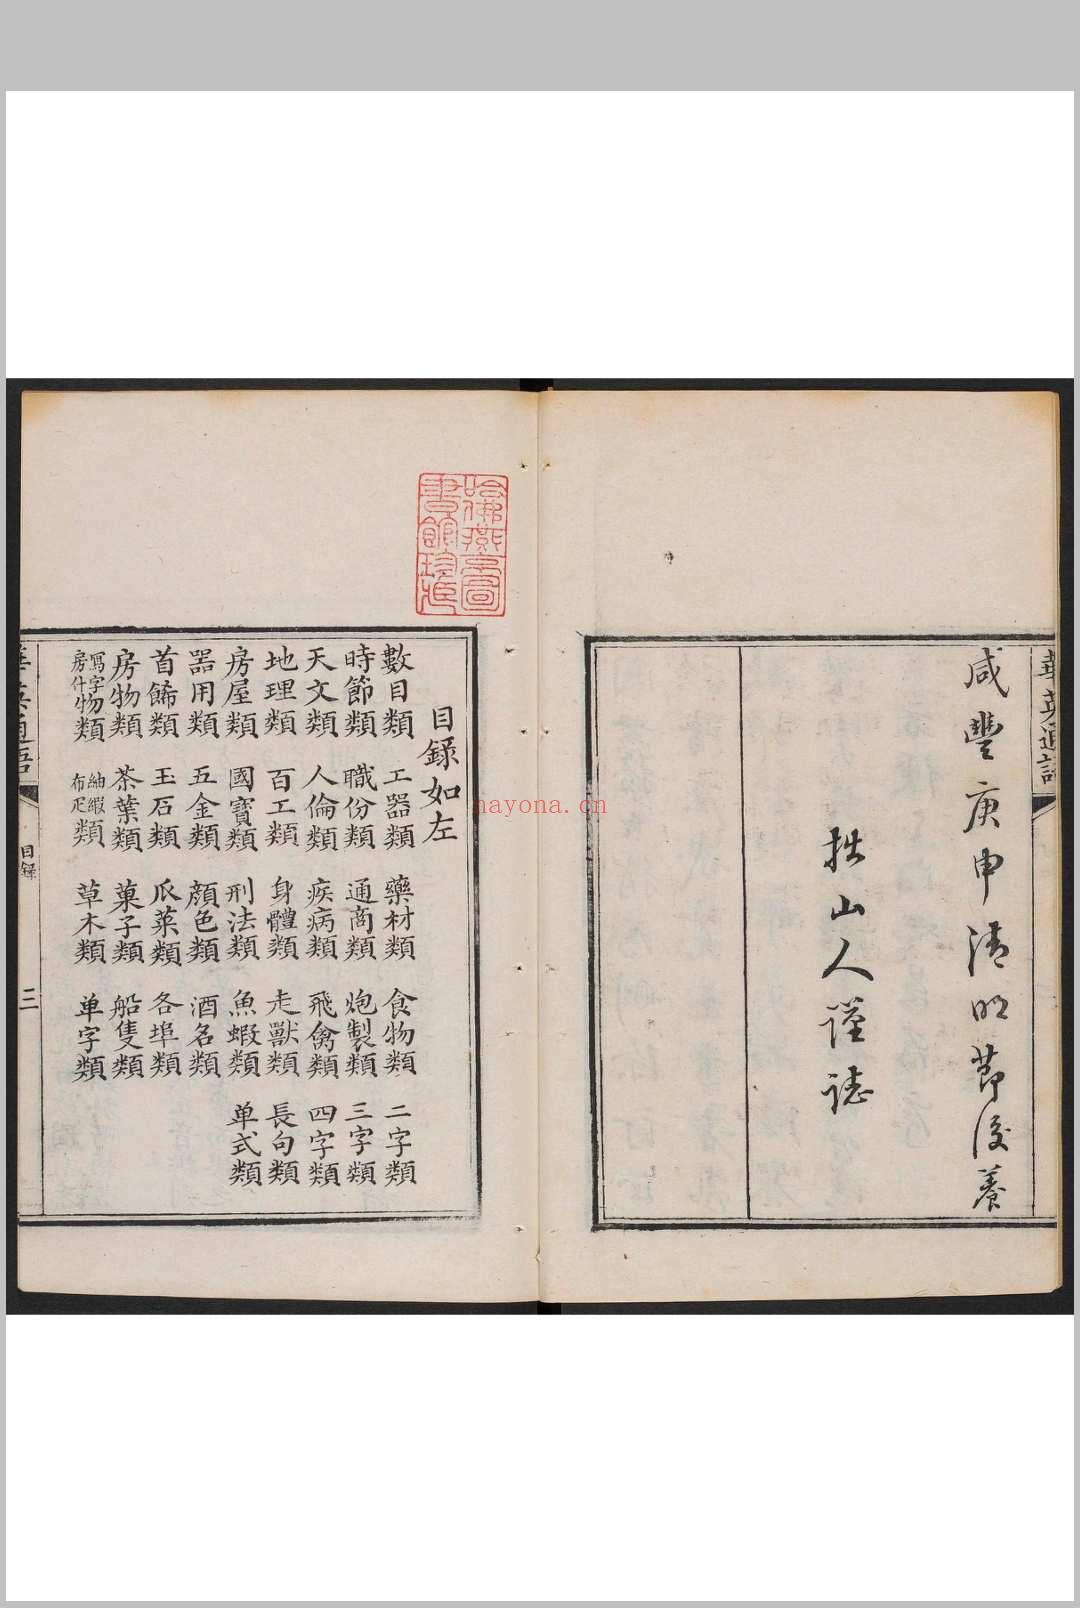 華英通語
咸豐庚申清明節後養
拙山人謹誌
哈佛燕圖
書館珍
目録如左
數目類 工器類 藥材類 食物類 二字類
時節類 職份類 通商類 炮製類 三字類
天文類 人倫類 疾病類 飛禽類 四字類
地理類 百工類 身體類 走獸類 長句類
房屋類 國寶類 刑法類 魚蝦類 单式類
器用類 五金類 顔色類 酒名類
首餙類 玉石類 瓜菜類 各埠類
房物類 茶葉類 菓子類 船隻類
寫字房什物類 紬緞布疋類 草木類 单字類
華英通語 目録 三
nayona.cn